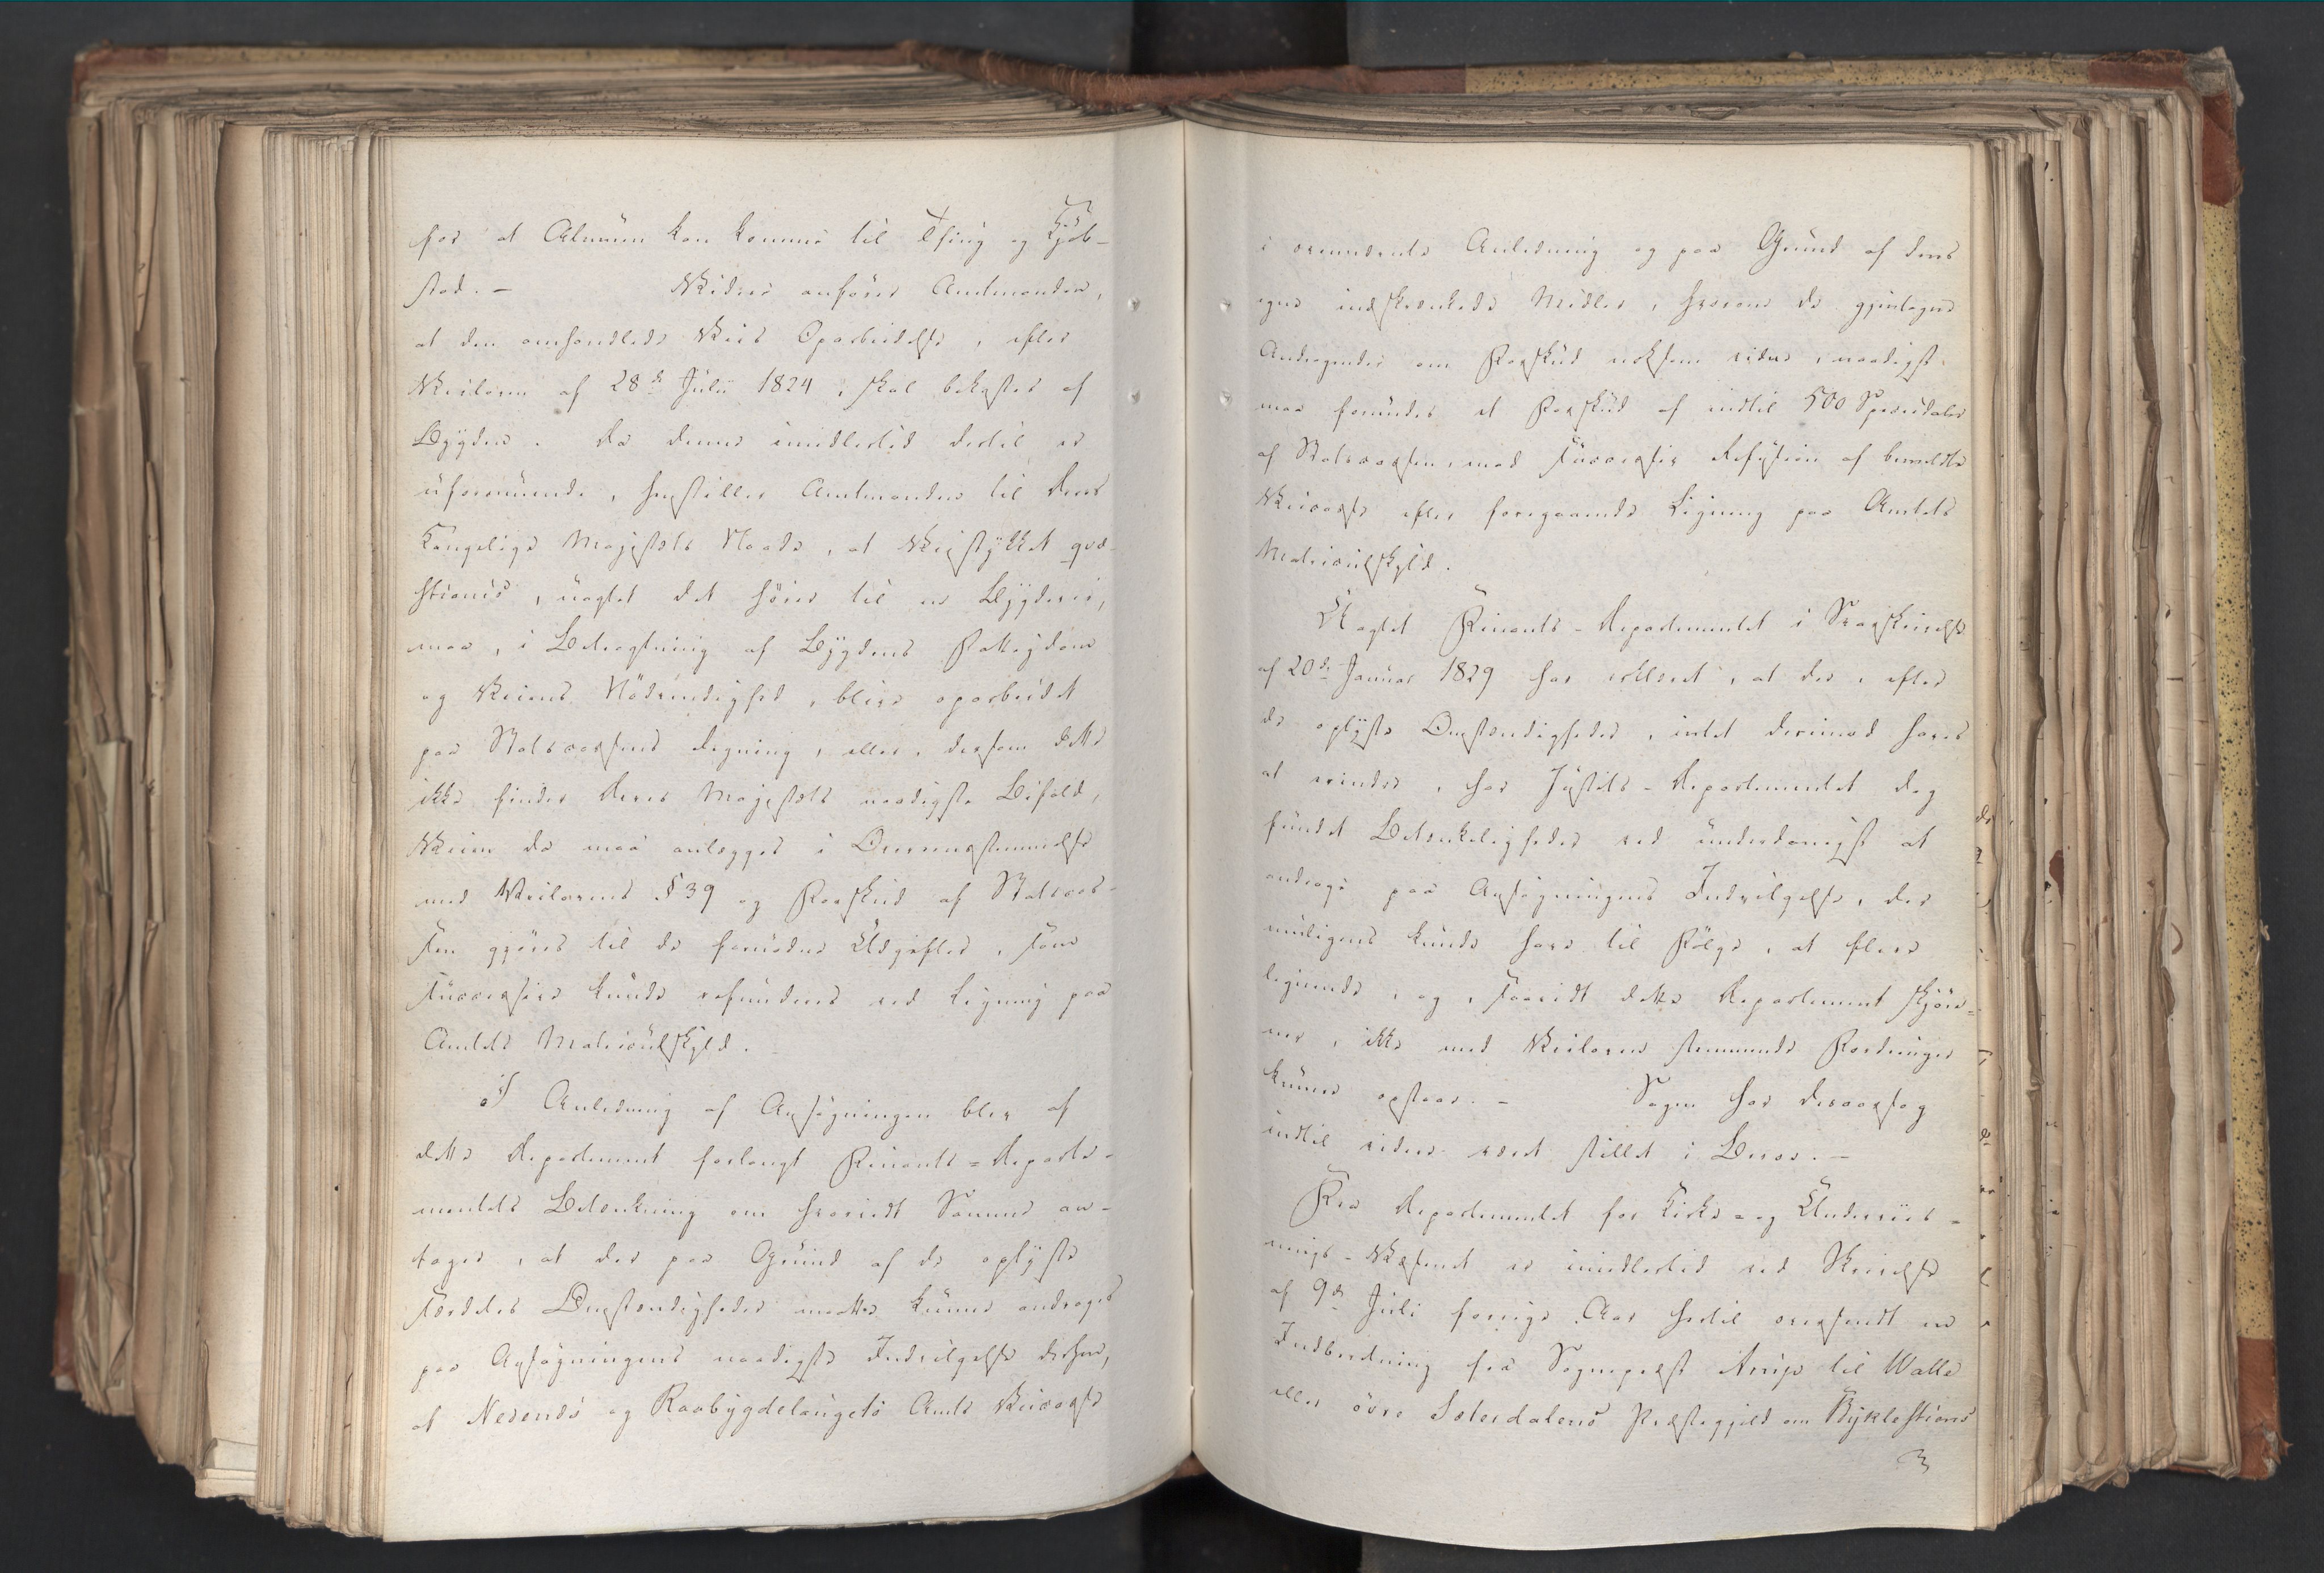 for at Almuen kan komme til Thing og Kjøb-
stad. – Videre anfører Amtmanden,
at den omhandlede Veis Oparbeidelse, efter
Veiloven af 28de Julii 1824, skal bekostes af
Bygden. Da denne imidlertid dertil er
uformuende, henstiller Amtmanden til Deres
Kongelige Majestæts Naade, at Veistykket qvæ-
stionis, uagtet det hører til en Bygdevei,
maa, i Betragtning af Bygdens Fattigdom
og Veiens Nödvendighed, blive oparbeidet
paa Statscassens Regning, eller, dersom dette
ikke finder Deres Majestæts naadigste Bifald,
Veien da maa anlægges i Overensstemmelse
med Veilovens § 39 og Forskud af Statscas-
sen gjøres til de fornødne Udgifter, som
successive kunde refunderes ved Ligning paa
Amtets Matriculskyld.
I Anledning af Ansøgningen blev af
dette Departement forlangt Finants-Departe-
mentets Betænkning om hvorvidt Samme an-
tager, at der paa Grund af de oplyste
særdeles Omstændigheder maatte kunne andrages
paa Ansøgningens naadigste Indvilgelse derhen,
at Nedenæs og Raabygdelaugets Amts Veicasse
i ovennævnte Anledning og paa Grund af dens
egne indskrænkede Midler, hvorom de gjentagne
Andragender om Forskud noksom vidne, naadigst
maa forundes et Forskud af indtil 500 Speciedaler
af Statscassen, mod successiv Refusion af bemeldte
Veicasse efter foregaaende Ligning paa Amtets
Matriculskyld.
Uagtet Finants-Departementet i Svarskrivelse
af 20de Januar 1829 har erklæret, at der, efter
de oplyste Omstændigheder, intet derimod haves
at erindre, har Justits-Departementet dog
fundet Betænkeligheder ved underdanigst at
andrage paa Ansøgningens Indvilgelse, der
muligens kunde have til Følge, at flere
lignende, og, saavidt dette Departement skjøn-
ner, ikke med Veiloven stemmende Fordringer
kunne opstaae. – Sagen har desaarsag
indtil videre været stillet i Beroe. –
Fra Departementet for Kirke- og Underviis-
nings-Væsenet er imidlertid ved Skrivelse
af 9de Juli forrige Aar hertil oversendt en
Indberetning fra Sognepræst Arup til Walle
eller övre Sætersdalens Præstegjeld om Byklestiens